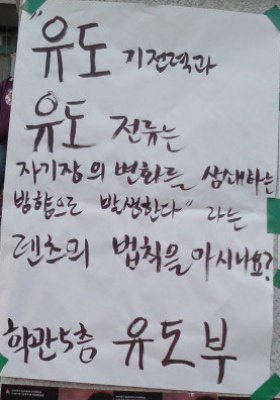 "유도 기전력과
유도 전류는
자기장의 변화를 상쇄하는
방향으로 발생한다" 라는
렌츠의 법칙을 아시나요?
학관5층 유도부